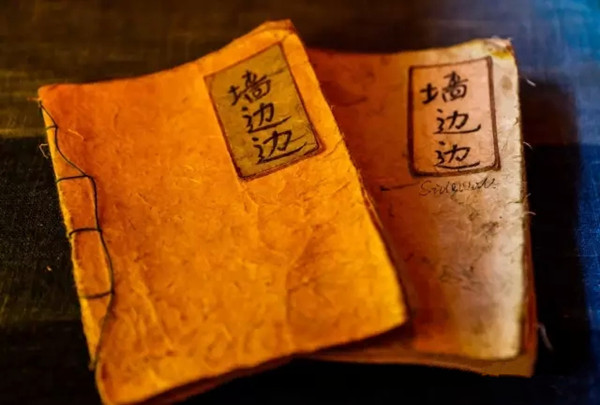 墙边边
墙边边